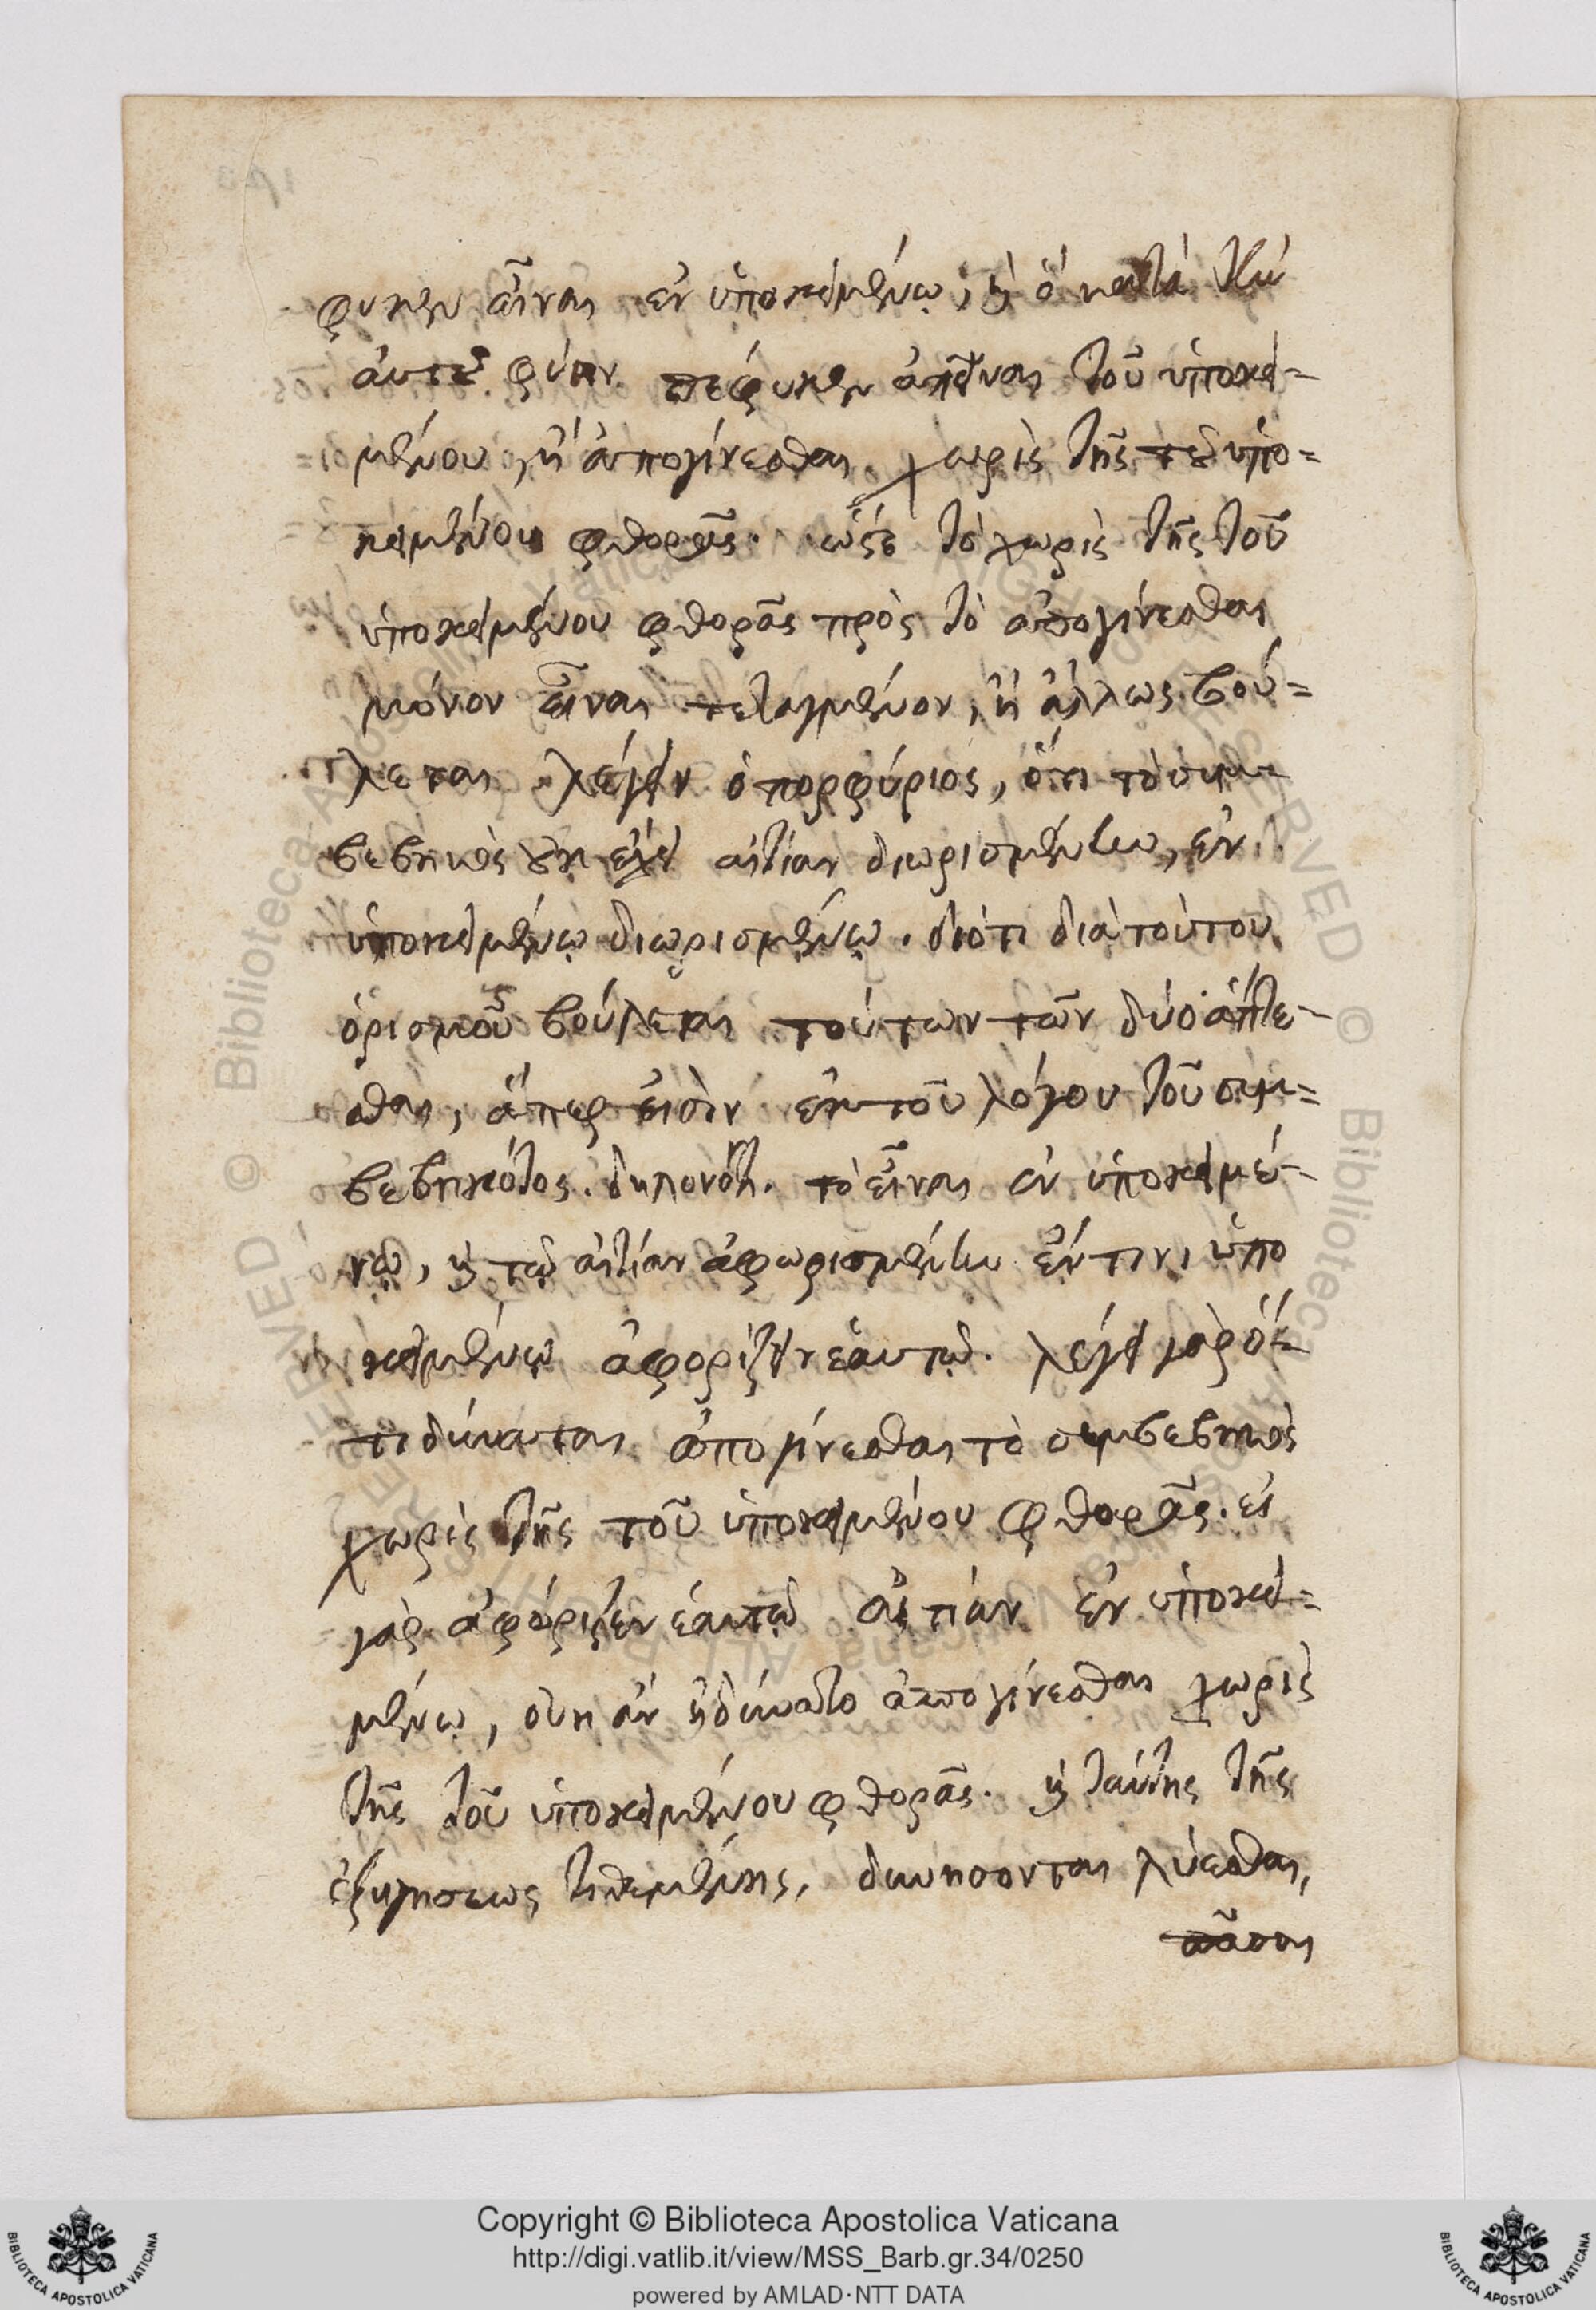 φυκεν εἶναι ἐν ὑποκειμένω, καὶ ὁ κατὰ τὴν
αὐτοῦ φύσιν πέφυκεν ἀπεῖναι τοῦ ὑποκει-
μένου, ἢ ἀπογίνεσθαι χωρὶς τῆς τοῦ ὑπο=
κειμένου φθορᾶς. ὥστε τὸ χωρὶς τῆς τοῦ
ὑποκειμένου φθορᾶς πρὸς τὸ ἀπογίνεσθαι
μόνον εἶναι τεταγμένον, ἢ ἄλλως βού=
λεται λέγειν ὁ πορφύριος, ὅτι τὸ συμ=
βεβηκὸς οὐκ ἔχει αἰτίαν διωρισμένην, ἐν
ὑποκειμένῳ διωρισμένῳ. διότι διὰ τούτου
ὁρισμοῦ βούλεται τούτων τῶν δύο ἅπτε-
σθαι, ἅπερ εἰσὶν ἐκ τοῦ λόγου τοῦ συμ=
βεβηκότος. δηλονότι. τὸ εἶναι ἐν ὑποκειμέ-
νῳ, καὶ τῷ αἰτίαν ἀφωρισμένην ἔν τινι ὑπο
κειμένῳ ἀφορίζειν ἑαυτῷ. λέγει γὰρ ὅ=
τι δύναται ἀπογίνεσθαι τὸ συμβεβηκὸς
χωρὶς τῆς τοῦ ὑποκειμένου φθορᾶς. εἰ
γὰρ ἀφώριζεν ἑαυτῷ αἰτίαν ἐν ὑποκει=
μένῳ, οὐκ ἂν ἠδύνατο ἀπογίνεσθαι χωρὶς
τῆς τοῦ ὑποκειμένου φθορᾶς. καὶ ταύτης τῆς
ἐξηγήσεως τιθεμένης, δυνήσονται λύεσθαι,
πᾶσαι
Copyright © Biblioteca Apostolica Vaticana
http://digi.vatlib.it/view/MSS_Barb.gr.34/0250
powered by AMLAD·NTT DATA